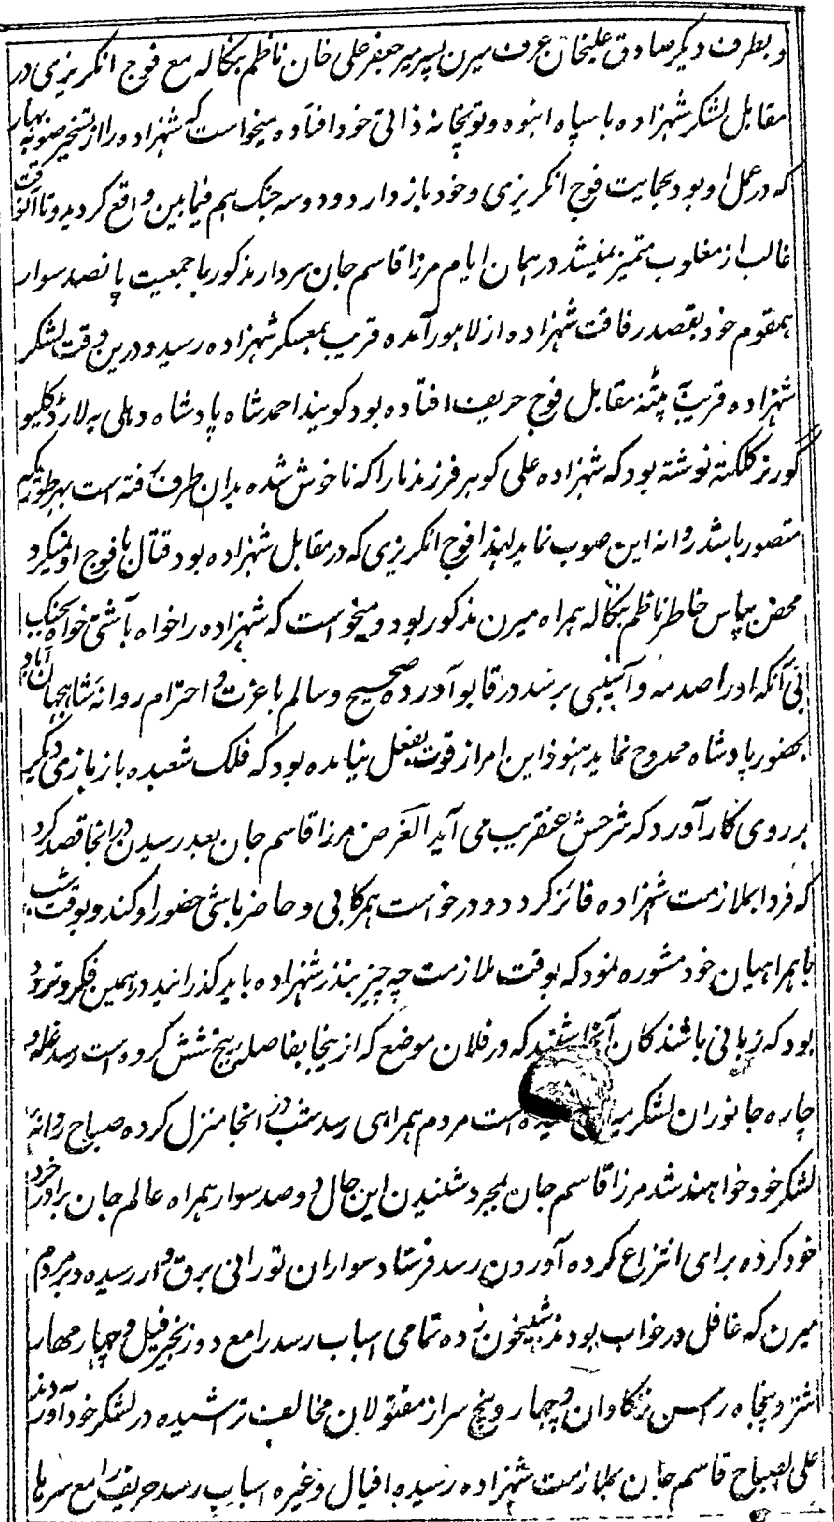 و بطرف دیگر صادق علیخان عرف میرن پسر میر جعفر علی خان ناظم بنگاله مع فوج انگریزی در
مقابل لشکر شهزاده با سپاه انبوه و توپخانه ذاتی خود افتاده میخواست که شهزاده را از تسخیر صوبه بهار
که در عمل او بود بحمایت فوج انگریزی و خود باز دارد و دو سه جنگ هم فیمابین واقع گردید و تا آنوقت
غالب از مغلوب متمیز نمیشد در همان ایام مرزا قاسم جان سردار مذکور با جمعیت پانصد سوار
همقوم خود بقصد رفاقت شهزاده از لاهور آمده قریب بمعسکر شهزاده رسید و درین وقت لشکر
شهزاده قریب پٹنه مقابل فوج حریف افتاده بود گویند احمد شاه پادشاه دهلی به لارڈ کلیو
گورنر کلکته نوشته بود که شهزاده علی گوهر فرزند ما را که ناخوش شده بدان طرف رفته است بهر طوریکه
متصور باشد روانه این صوب نماید لهذا فوج انگریزی که در مقابل شهزاده بود قتال با فوج او نمیکرد
محض بپاس خاطر ناظم بنگاله همراه میرن مذکور بود و میخواست که شهزاده را خواه بآشتی خواه بجنگ
بی آنکه او را صدمه و آسیبی برسد در قابو آورده صحیح و سالم با عزت و احترام روانه شاهجهان آباد
بحضور پادشاه ممدوح نماید هنوز این امر از قوت بفعل نیامده بود که فلک شعبده باز بازی دیگر
بر روی کار آورد که شرحش عنقریب می آید الغرض مرزا قاسم جان بعد رسیدن در انجا قصد کرد
که فردا بملازمت شهزاده فائز گردد و درخواست همرکابی و حاضر باشی حضور او کند و بوقت شب
با همراهیان خود مشوره نمود که بوقت ملازمت چه چیز بنذر شهزاده باید گذرانید در همین فکر و تردد
بود که زبانی باشندگان آنجا شنید که در فلان موضع که از ینجا بفاصله پنج شش کروه است رسد غله و
چاره جانوران لشکر است مردم همراهی رسد شب در انجا منزل کرده صباح روانه
لشکر خود خواهند شد مرزا قاسم جان بمجرد شنیدن این حال دو صد سوار همراه عالم جان برادر خرد
خود کرده برای انتزاع کرده آوردن رسد فرستاد سواران تورانی برق وار رسیده بر مردم
میرن که غافل در خواب بودند شبیخون زده تمامی اسباب رسد را مع دو زنجیر فیل و چهار مهار
اشتر و پنجاه راس نرگاوان و چهار و پنج سر از مقتولان مخالف تراشیده در لشکر خود آوردند
علی الصباح قاسم جان بملازمت شهزاده رسیده افیال و غیره اسباب رسد حریف را مع سرها